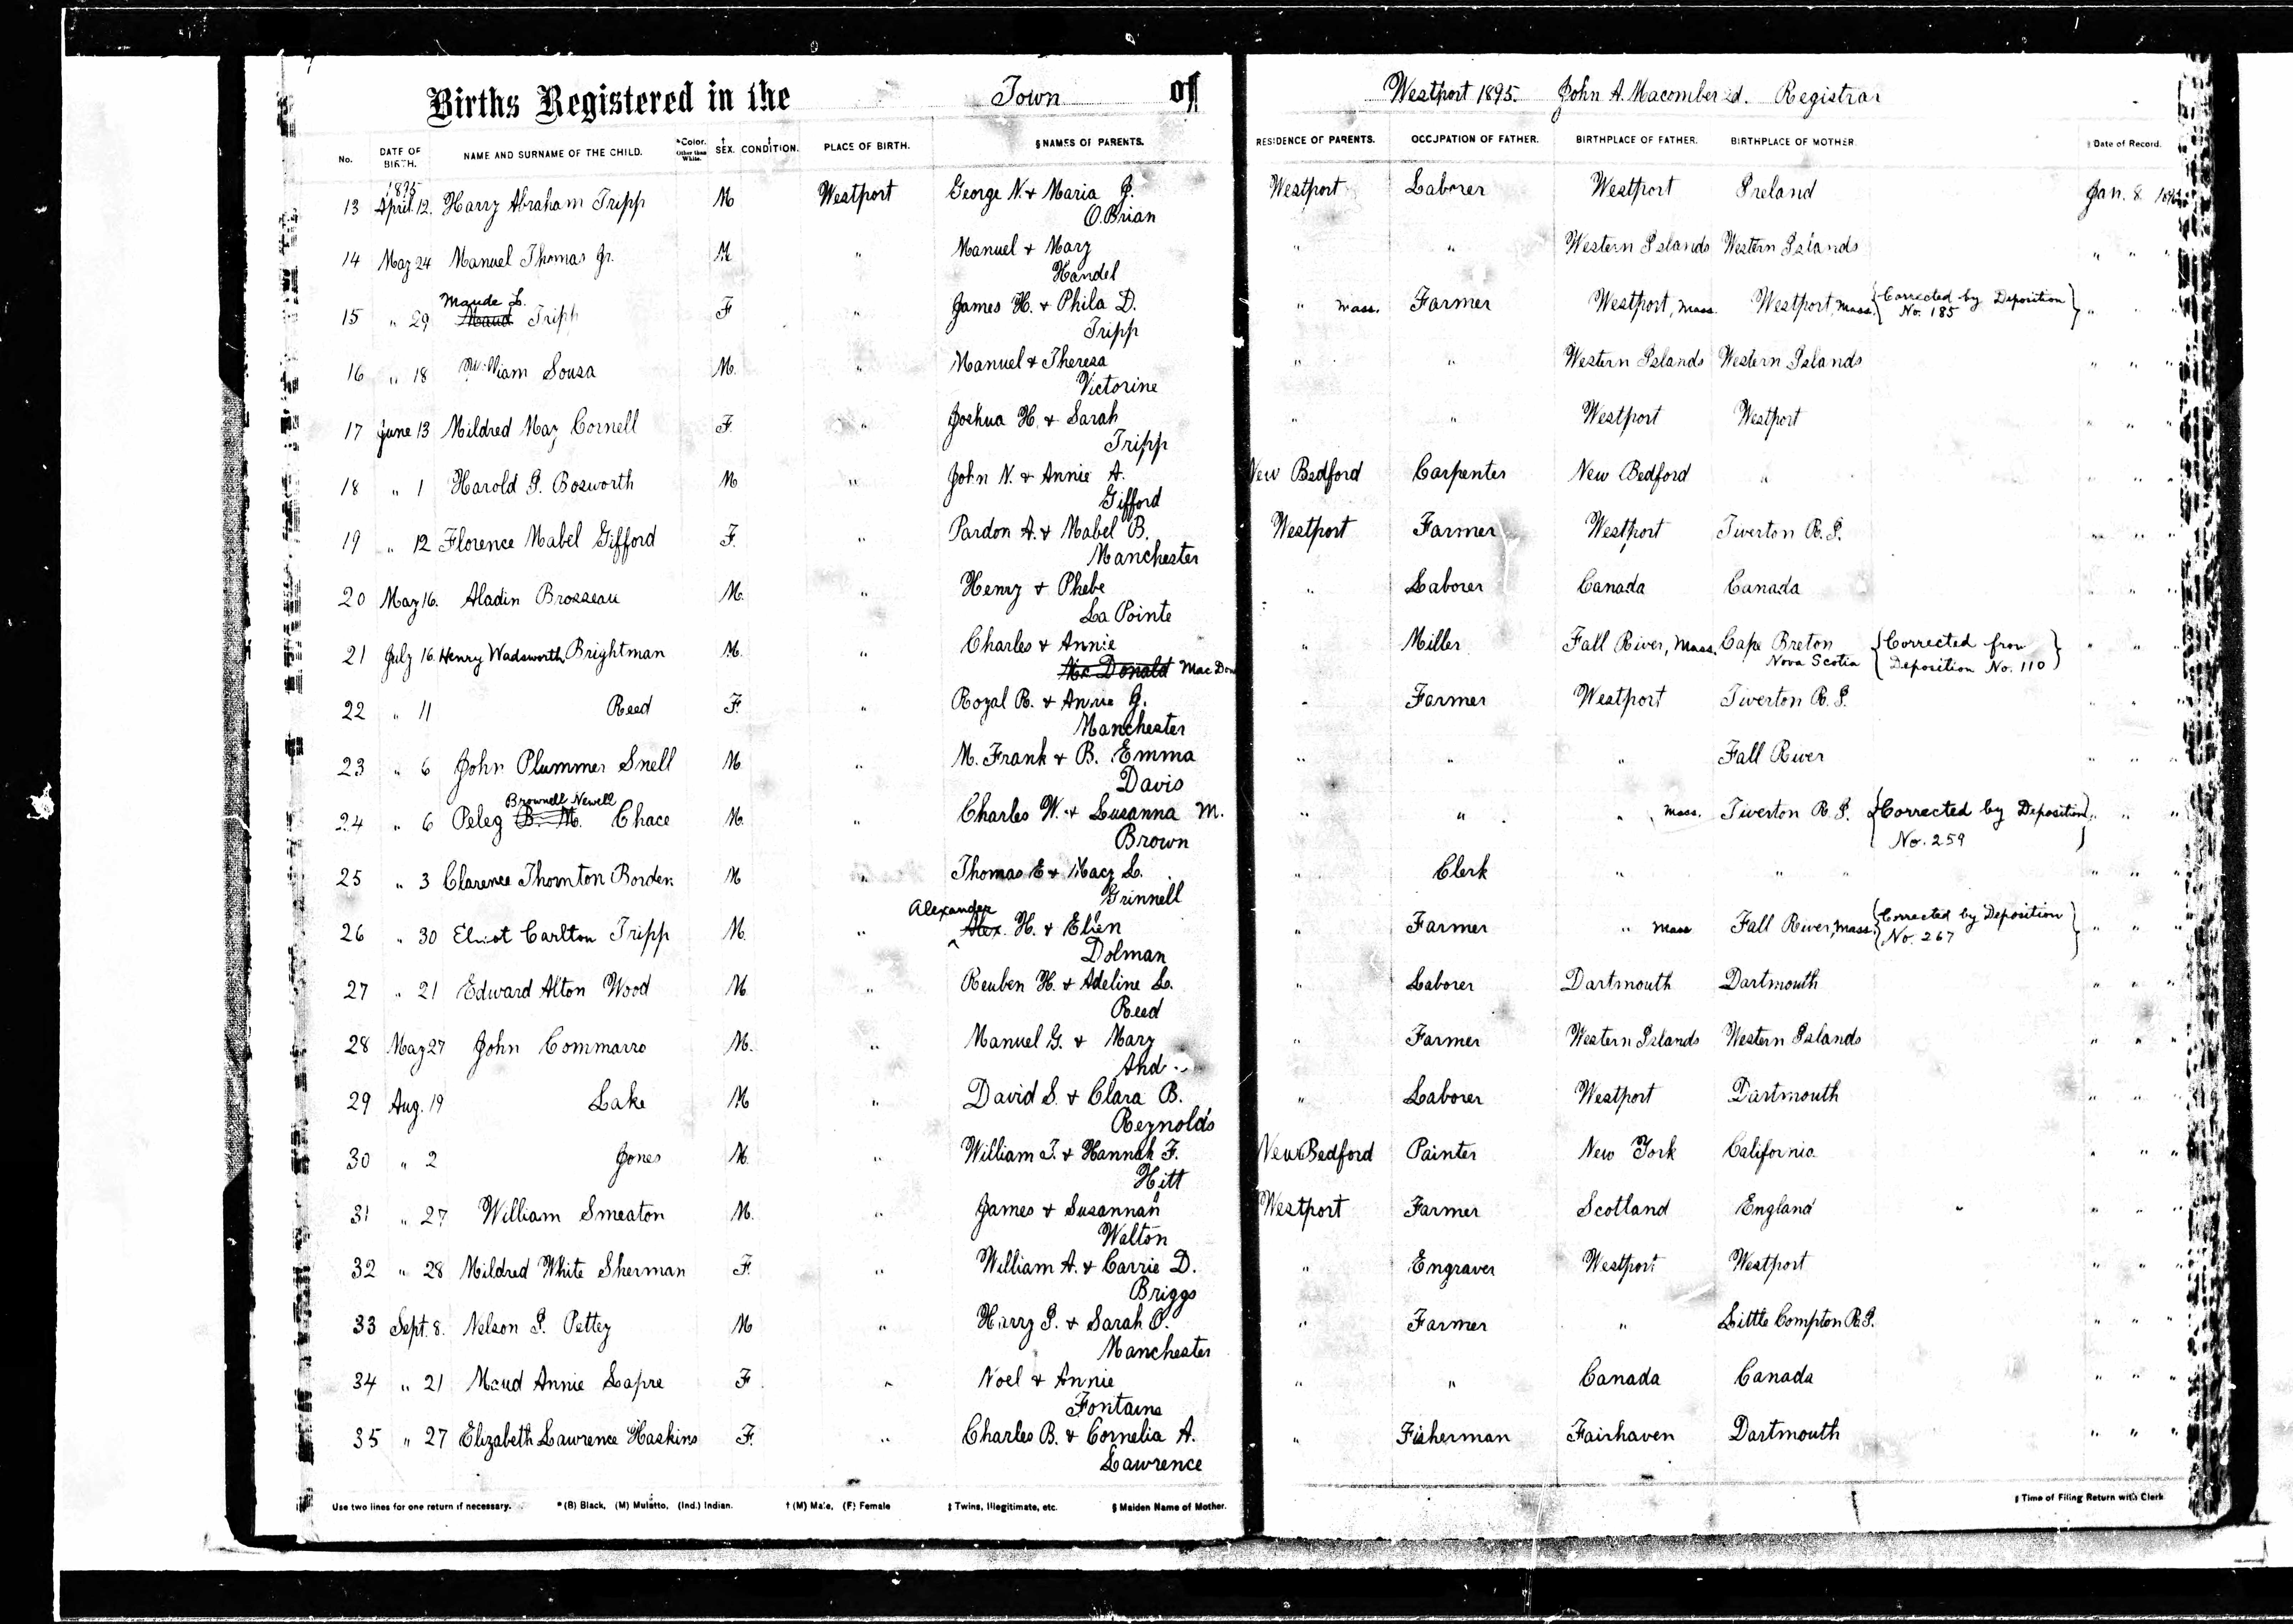 Births Registered in the Town of Westport 1895. John A. Macomber 2d. Registrar
No. DATE OF BIRTH. NAME AND SURNAME OF THE CHILD. *Color. Other than White. † SEX. ‡ CONDITION. PLACE OF BIRTH. § NAMES OF PARENTS. RESIDENCE OF PARENTS. OCCUPATION OF FATHER. BIRTHPLACE OF FATHER. BIRTHPLACE OF MOTHER. Date of Record.
1895
13 April 12. Harry Abraham Tripp M Westport George N. & Maria J. Westport Laborer Westport Ireland Jan. 8
O.Brian
14 May 24 Manuel Thomas Jr. M " Manuel & Mary " " Western Islands Western Islands " " "
Handel
Maude L.
15 " 29 Maud Tripp F " James H. & Phila D. " Mass. Farmer Westport, Mass. Westport, Mass. {Corrected by Deposition No. 185} " " "
Tripp
16 " 18 William Sousa M. " Manuel & Theresa " " Western Islands Western Islands " " "
Victorine
17 June 13 Mildred May Cornell F. " Joshua H. & Sarah " " Westport Westport " " "
Tripp
18 " 1 Harold I. Bosworth M " John N. & Annie A. New Bedford Carpenter New Bedford " " " "
Gifford
19 " 12 Florence Mabel Gifford F. " Pardon A. & Mabel B. Westport Farmer Westport Tiverton R.I. " " "
Manchester
20 May 16. Aladin Brosseau M. " Henry & Phebe " Laborer Canada Canada " " "
La Pointe
21 July 16. Henry Wadsworth Brightman M. " Charles & Annie " Miller Fall River, Mass. Cape Breton Nova Scotia {Corrected from Deposition No. 110} " " "
Mc Donald Mac Don
22 " 11 Reed F. " Royal R. & Annie G. " Farmer Westport Tiverton R.I. " " "
Manchester
23 " 6 John Plummer Snell M " M. Frank & B. Emma " " " Fall River " " "
Davis
Brownell Newell
24 " 6 Peleg B. M. Chace M. " Charles W. & Susanna M. " " " Mass. Tiverton R.I. {Corrected by Deposition No. 259} " " "
Brown
25 " 3 Clarence Thornton Borden M " Thomas E & Mary L. " Clerk " " " " " "
Grinnell
Alexander
26 " 30 Eliot Carlton Tripp M. " Alex. H. & Ellen " Farmer " Mass Fall River, Mass. {Corrected by Deposition No. 267} " " "
Dolman
27 " 21 Edward Alton Wood M " Reuben H. & Adeline L. " Laborer Dartmouth Dartmouth " " "
Reed
28 May 27 John Commarro M. " Manuel G. & Mary " Farmer Western Islands Western Islands " " "
29 Aug. 19 Lake M " David S. & Clara B. " Laborer Westport Dartmouth " " "
Reynolds
30 " 2 Jones M. " William J. & Hannah F. New Bedford Painter New York California " " "
Hitt
31 " 27 William Smeaton M. " James & Susannah Westport Farmer Scotland England " " "
Walton
32 " 28 Mildred White Sherman F. " William A. & Carrie D. " Engraver Westport Westport " " "
Briggs
33 Sept. 8. Nelson I. Pettey M " Harry I. & Sarah O. " Farmer " Little Compton R.I. " " "
Manchester
34 " 21 Maud Annie Lapre F " Noel & Annie " " Canada Canada " " "
Fontaine
35 " 27 Elizabeth Lawrence Haskins F. " Charles B. & Cornelia A. " Fisherman Fairhaven Dartmouth " " "
Lawrence
Use two lines for one return if necessary. *(B) Black, (M) Mulatto, (Ind.) Indian. †(M) Male, (F) Female ‡ Twins, Illegitimate, etc. § Maiden Name of Mother. Time of Filing Return with Clerk